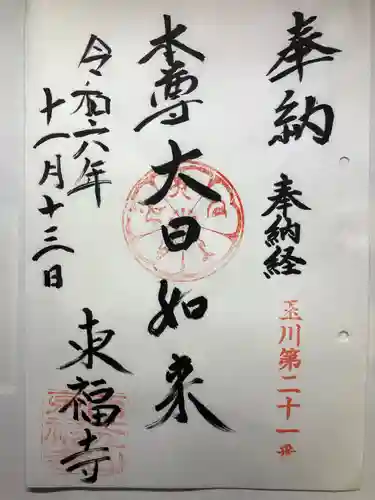 奉納
奉納経
玉川第二十一番
本尊大日如来
令和六年
十一月十三日
東福寺